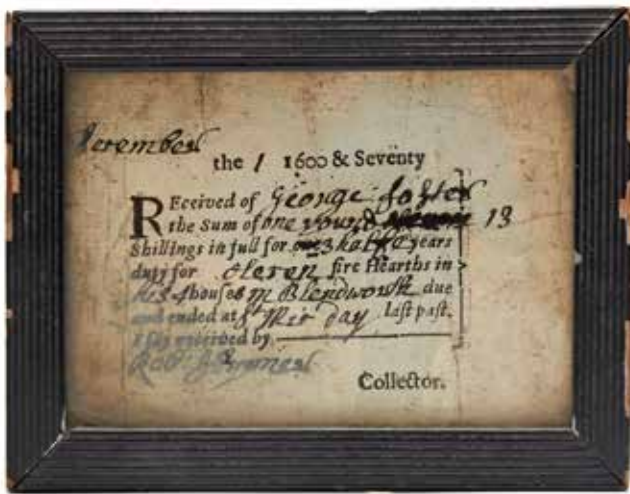 December
the 1 1600 & Seventy
REceived of George Foster
the Sum of one pound 13
Shillings in full for 3 halfe years
duty for eleven fire Hearths in
his 4 houses in Blendworth due
and ended at Mic day last past.
I say received by
Collector.